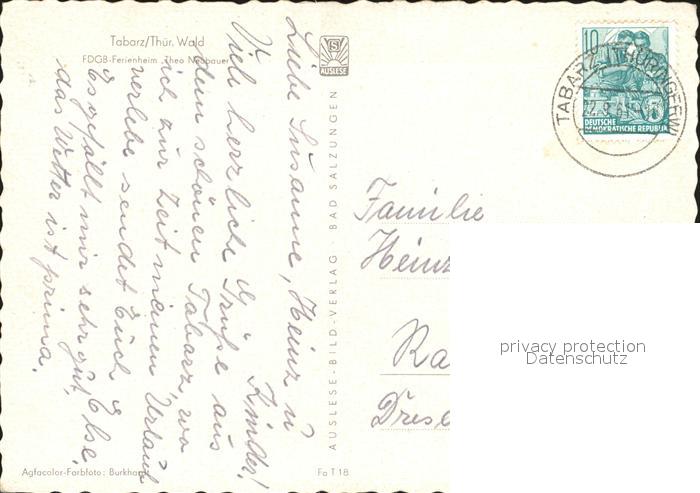 Tabarz/Thür. Wald
FDGB-Ferienheim „Theo Neubauer"
Liebe Susanne, Heinz u
Kinder!
Viele herzliche Grüße aus
dem schönen Tabarz, wo
ich zur Zeit meinen Urlaub
verlebe sendet Euch Else.
Es gefällt mir sehr gut,
das Wetter ist prima.
Agfacolor-Farbfoto: Burkhardt
Fa T 18
AUSLESE-BILD-VERLAG · BAD SALZUNGEN
S
AUSLESE
10
DEUTSCHE
DEMOKRATISCHE REPUBLIK
TABARZ (THÜRINGERW)
Familie
Heinz
Ra
Dresd
privacy protection
Datenschutz